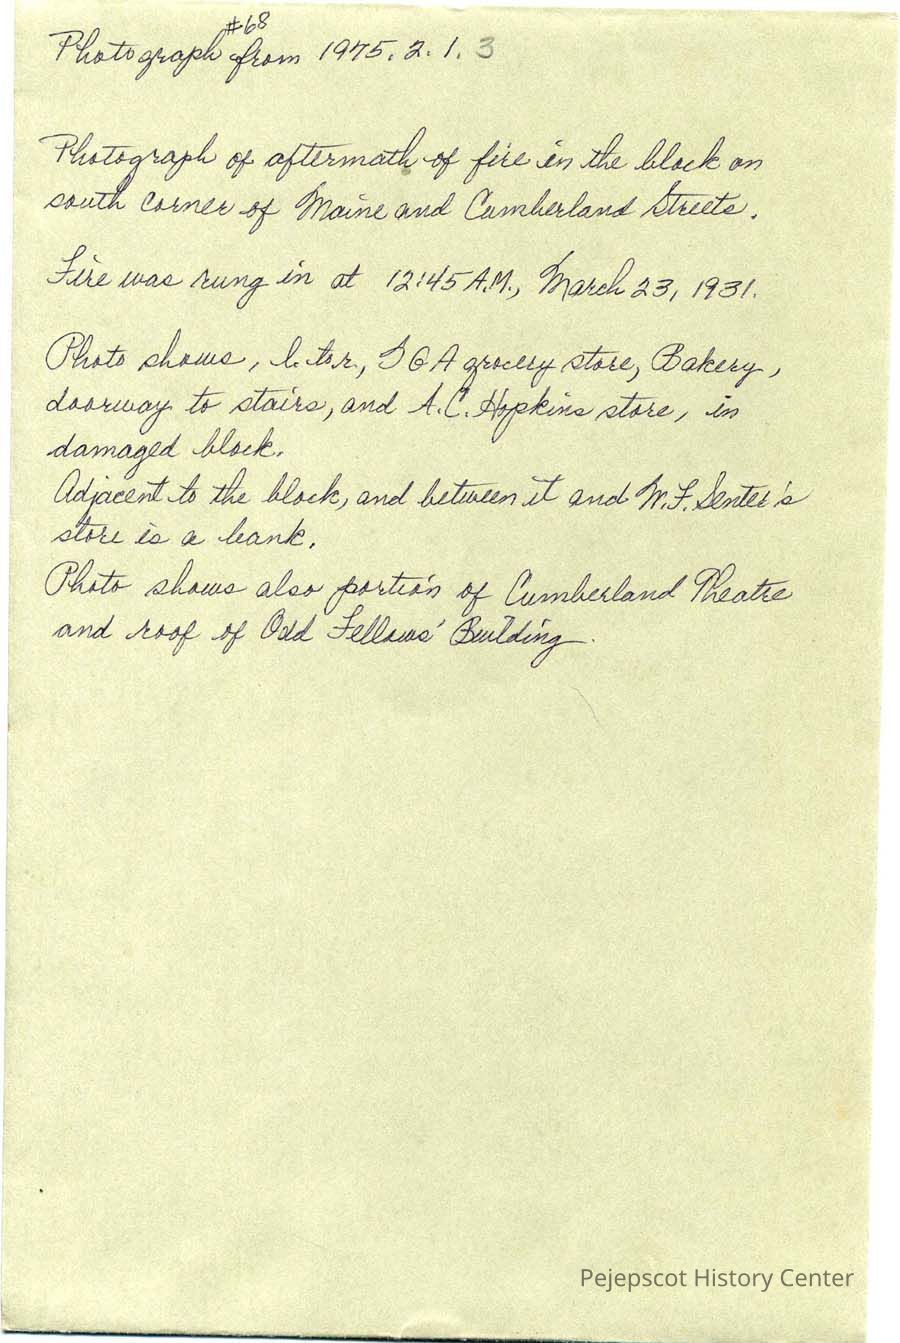 #68
Photograph from 1975.2.1.3
Photograph of aftermath of fire in the block on
south corner of Maine and Cumberland Streets.
Fire was rung in at 12:45 A.M., March 23, 1931.
Photo shows, l. to r., IGA grocery store, Bakery,
doorway to stairs, and A.C. Hopkins store, in
damaged block.
Adjacent to the block, and between it and W.F. Senter's
store is a bank.
Photo shows also portion of Cumberland Theatre
and roof of Odd Fellows' Building.
Pejepscot History Center